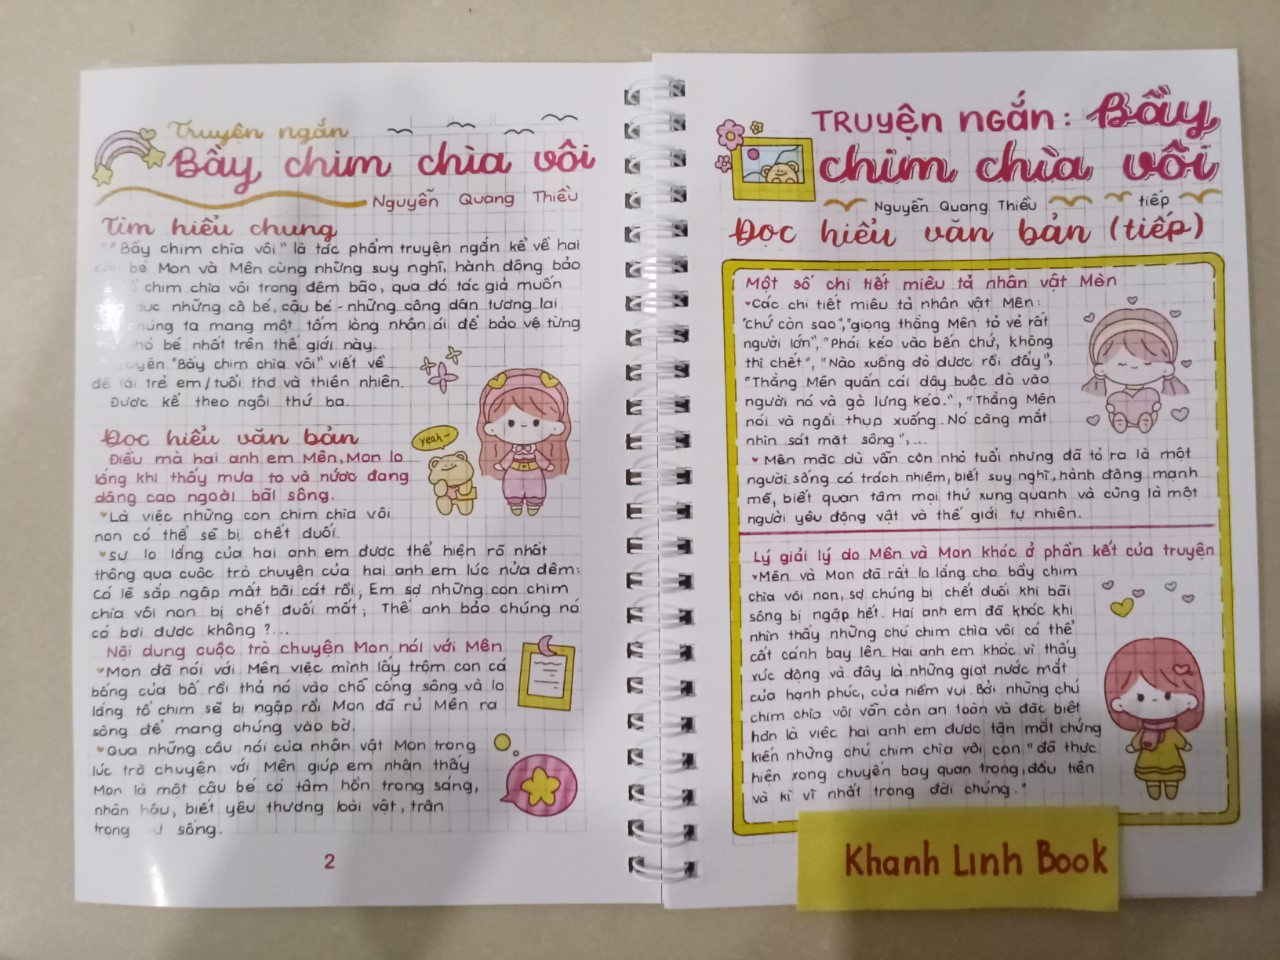 Truyện ngắn
Bầy chim chìa vôi
Nguyễn Quang Thiều
Tìm hiểu chung
"Bầy chim chìa vôi" là tác phẩm truyện ngắn kể về hai
bé Mon và Mên cùng những suy nghĩ, hành động bảo
chim chìa vôi trong đêm bão, qua đó tác giả muốn
những cô bé, cậu bé - những công dân tương lai
ta mang một tấm lòng nhân ái để bảo vệ từng
bé nhất trên thế giới này.
"Bầy chim chìa vôi" viết về
đề tài trẻ em/tuổi thơ và thiên nhiên.
Được kể theo ngôi thứ ba.
Đọc hiểu văn bản
Điều mà hai anh em Mên, Mon lo
lắng khi thấy mưa to và nước đang
dâng cao ngoài bãi sông.
Là việc những con chim chìa vôi
non có thể sẽ bị chết đuối.
Sự lo lắng của hai anh em được thể hiện rõ nhất
thông qua cuộc trò chuyện của hai anh em lúc nửa đêm:
Có lẽ sắp ngập mất bãi cát rồi, Em sợ những con chim
chìa vôi non bị chết đuối mất; Thế anh bảo chúng nó
có bơi được không?...
Nội dung cuộc trò chuyện Mon nói với Mên
Mon đã nói với Mên việc mình lấy trộm con cá
bống của bố rồi thả nó vào chỗ cống sông và lo
lắng tổ chim sẽ bị ngập rồi Mon đã rủ Mên ra
sông để mang chúng vào bờ.
Qua những câu nói của nhân vật Mon trong
lúc trò chuyện với Mên giúp em nhận thấy
Mon là một cậu bé có tâm hồn trong sáng,
nhân hậu, biết yêu thương loài vật, trân
trọng sự sống.
yeah~
2
TRuyện NGắN: Bầy
chim chìa vôi
Nguyễn Quang Thiều
tiếp
Đọc hiểu văn bản (tiếp)
Một số chi tiết miêu tả nhân vật Mên
Các chi tiết miêu tả nhân vật Mên:
"Chứ còn sao","giọng thằng Mên tỏ vẻ rất
người lớn", "Phải kéo vào bến chứ, không
thì chết", "Nào xuống đò được rồi đấy",
"Thằng Mên quấn cái dây buộc đò vào
người nó và gò lưng kéo.", "Thằng Mên
nói và ngồi thụp xuống. Nó căng mắt
nhìn sát mặt sông",...
Mên mặc dù vẫn còn nhỏ tuổi nhưng đã tỏ ra là một
người sống có trách nhiệm, biết suy nghĩ, hành động mạnh
mẽ, biết quan tâm mọi thứ xung quanh và cũng là một
người yêu động vật và thế giới tự nhiên.
Lý giải lý do Mên và Mon khóc ở phần kết của truyện
Mên và Mon đã rất lo lắng cho bầy chim
chìa vôi non, sợ chúng bị chết đuối khi bãi
sông bị ngập hết. Hai anh em đã khóc khi
nhìn thấy những chú chim chìa vôi có thể
cất cánh bay lên. Hai anh em khóc vì thấy
xúc động và đây là những giọt nước mắt
của hạnh phúc, của niềm vui. Bởi những chú
chim chìa vôi vẫn còn an toàn và đặc biệt
hơn là việc hai anh em được tận mắt chứng
kiến những chú chim chìa vôi con "đã thực
hiện xong chuyến bay quan trọng, đầu tiên
và kì vĩ nhất trong đời chúng."
Khanh Linh Book